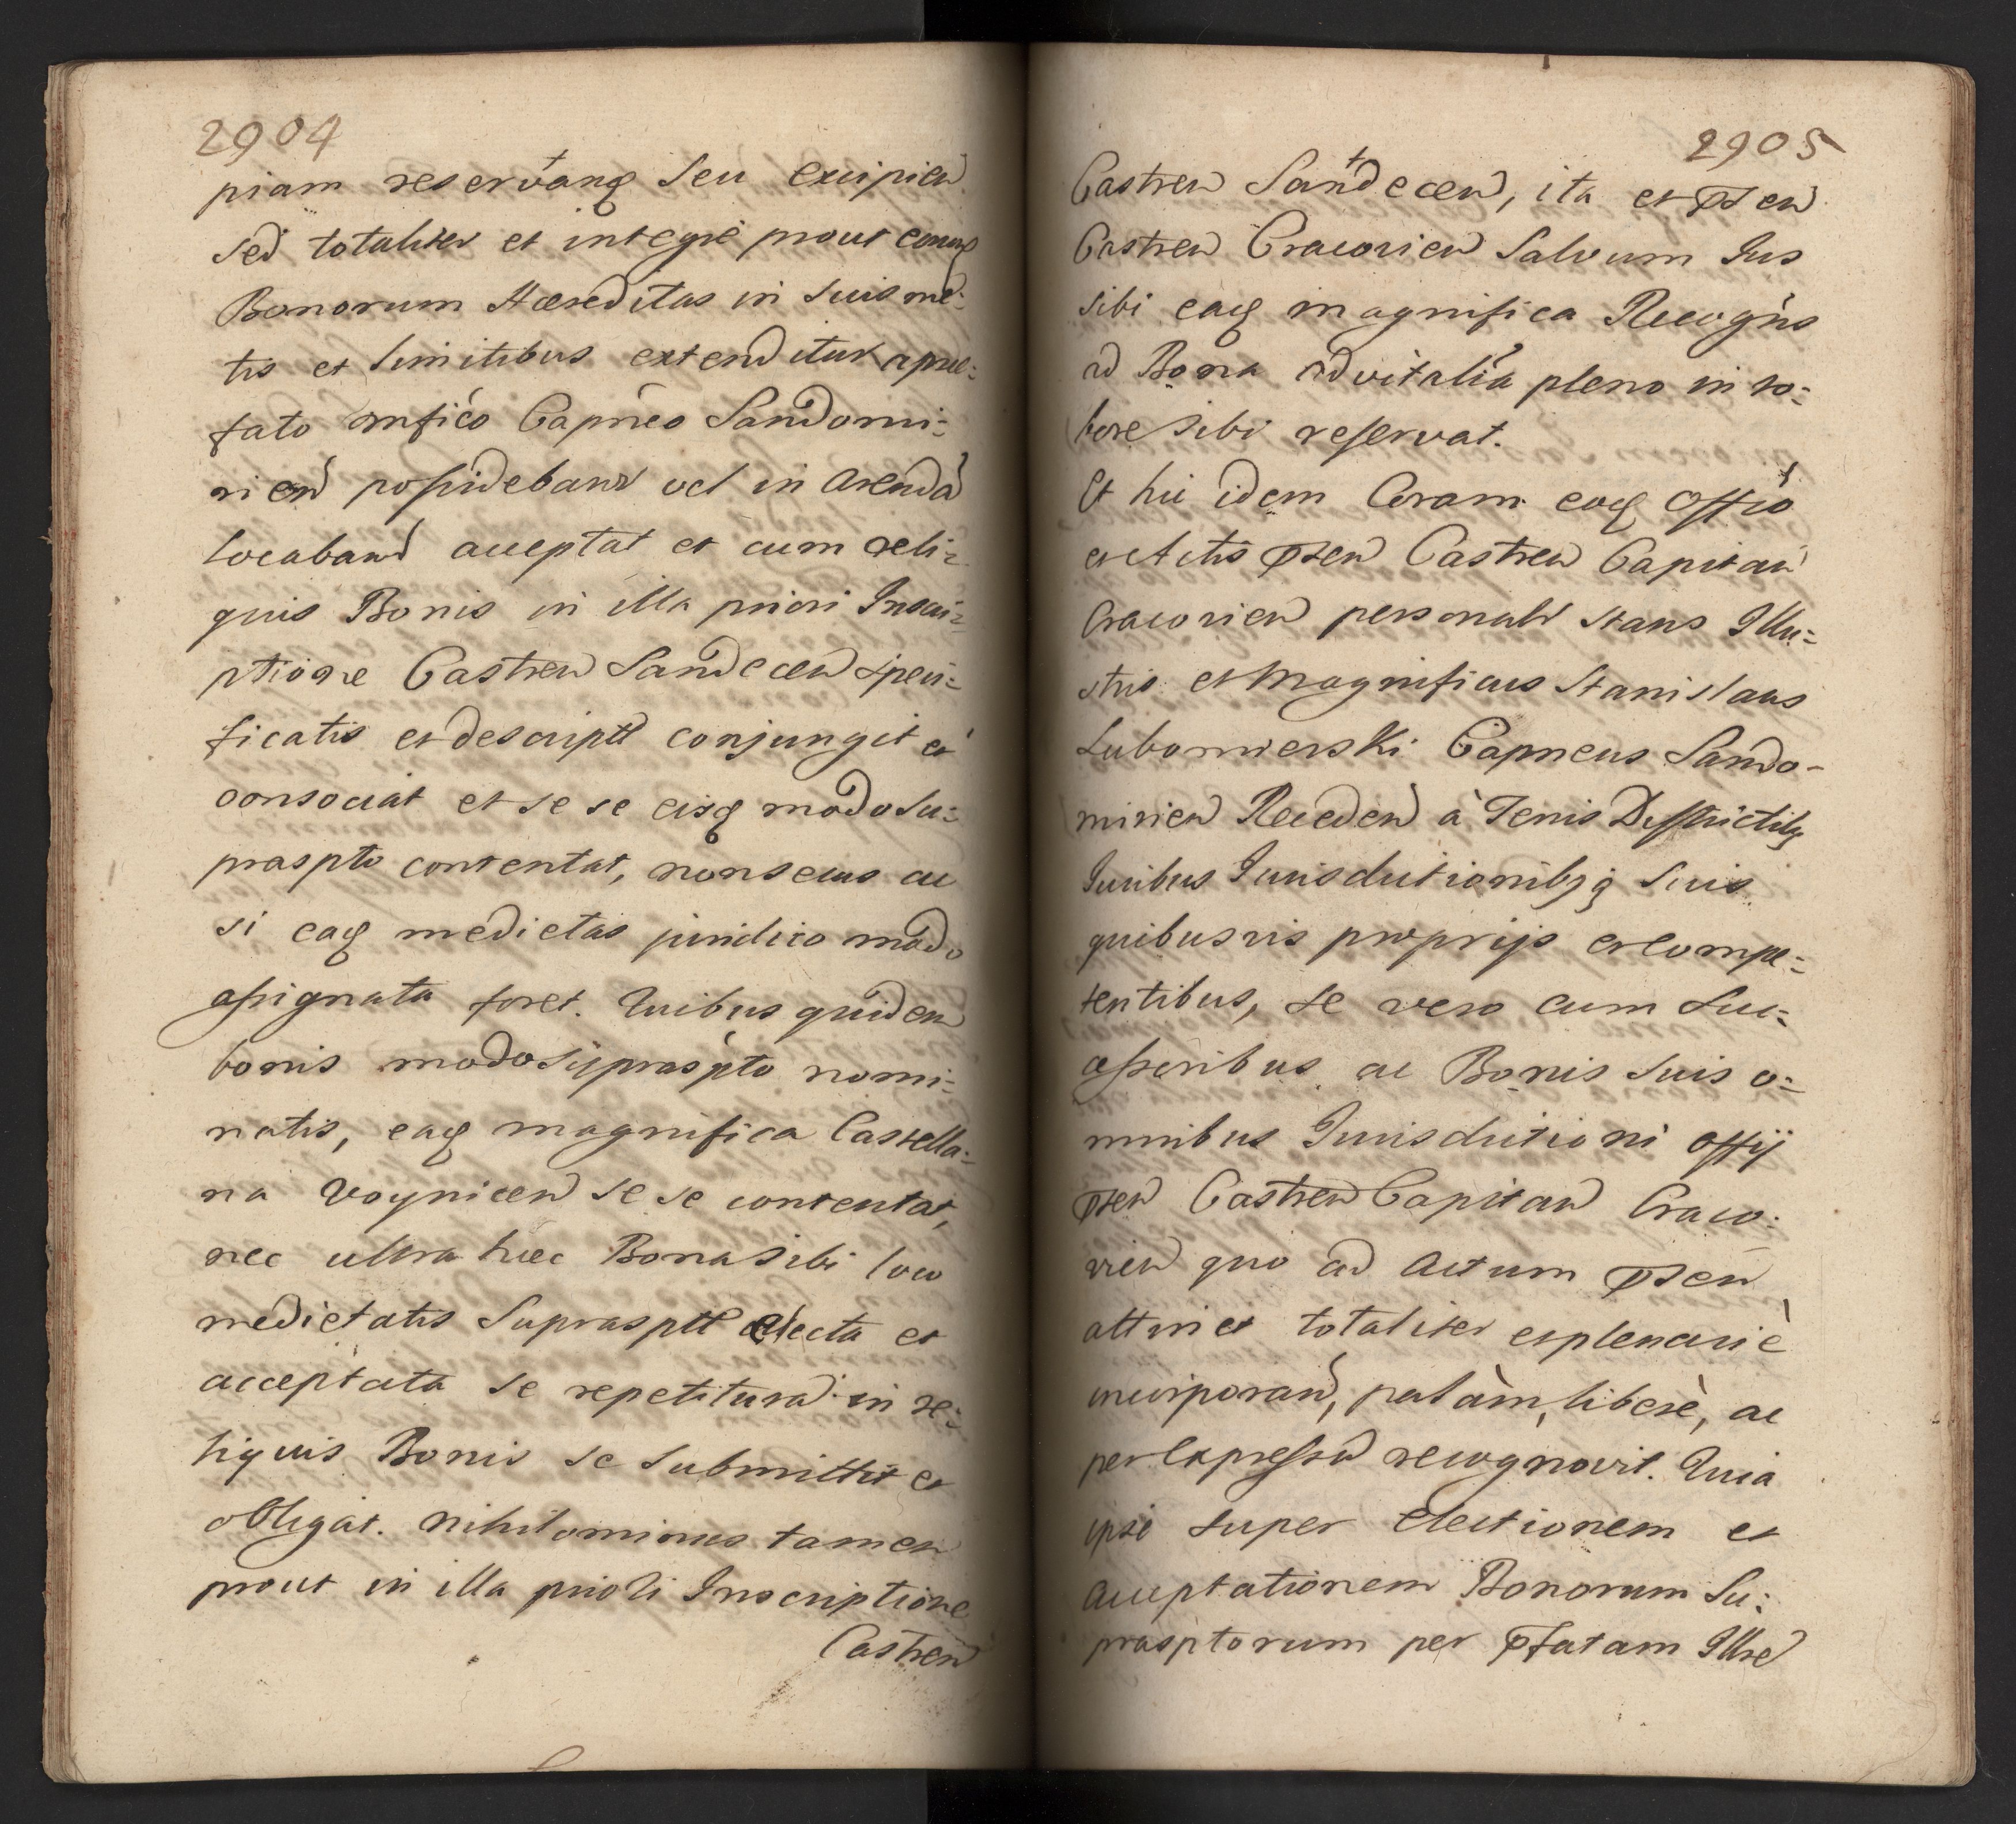 2904
piam reservanq seu excipien
sed totaliter et integrè prout earuq
Bonorum Hæreditas in suis me:
tis et limitibus extenditur a præ:
fato mfico Capneo Sandomi:
rien possideband vel in Arenda
locaband acceptat et cum reli:
quis Bonis in illa priori Inscri:
ptione Castren Sandecen speci:
ficatis et descriptt conjungit et
consociat et se se eisq modo su:
praspto contentat, non secus ac
si eaq medietas juridico modo
assignata foret. Quibus quidem
bonis modo supraspto nomi:
natis, eaq magnifica Castella:
na Voynicen se se contentat,
nec ultra hæc Bona sibi loco
medietatis suprasptt electa et
acceptata se repetitura in re:
liquis Bonis se submittit et
obligat. nihilominus tamen
prout in illa priori Inscriptione
Castren
2905
Castren Sandecen, ita et pnten
Castren Cracovien salvum Jus
sibi eaq magnifica Recogns
ad Bona advitalia pleno in ro:
bore sibi reservat.
Et hic idem Coram eoq offio
et Actis pnten Castren Capitan
Cracovien personalr stans Illu:
stris et Magnificus Stanislaus
Lubomierski Capneus Sando-
mirien Receden à Terris Districtibq
Juribus Jurisdictionibqq suis
quibusvis proprijs et compe:
tentibus, se vero cum suc:
cessoribus ac Bonis suis o:
mnibus Jurisdictioni offij
pnten Castren Capitan Craco:
vien quo ad Actum pnten
attinet totaliter et plenariè
incorporand, palàm, liberè, ac
per Expressu recognovit. Quia
ipse super electionem et
acceptationem Bonorum Su:
prasptorum per pfatam Illre